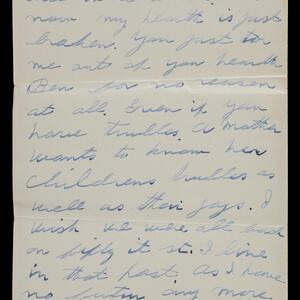 now my hearth is just
broken. You just tor
me out of you hearth
Ben for no reason
at all. Even if you
have trubles a mother
wants to know her
childrens trubles as
well as their joys. I
wish we were all back
on fifty it st. I live
in that past as I have
no futur any more